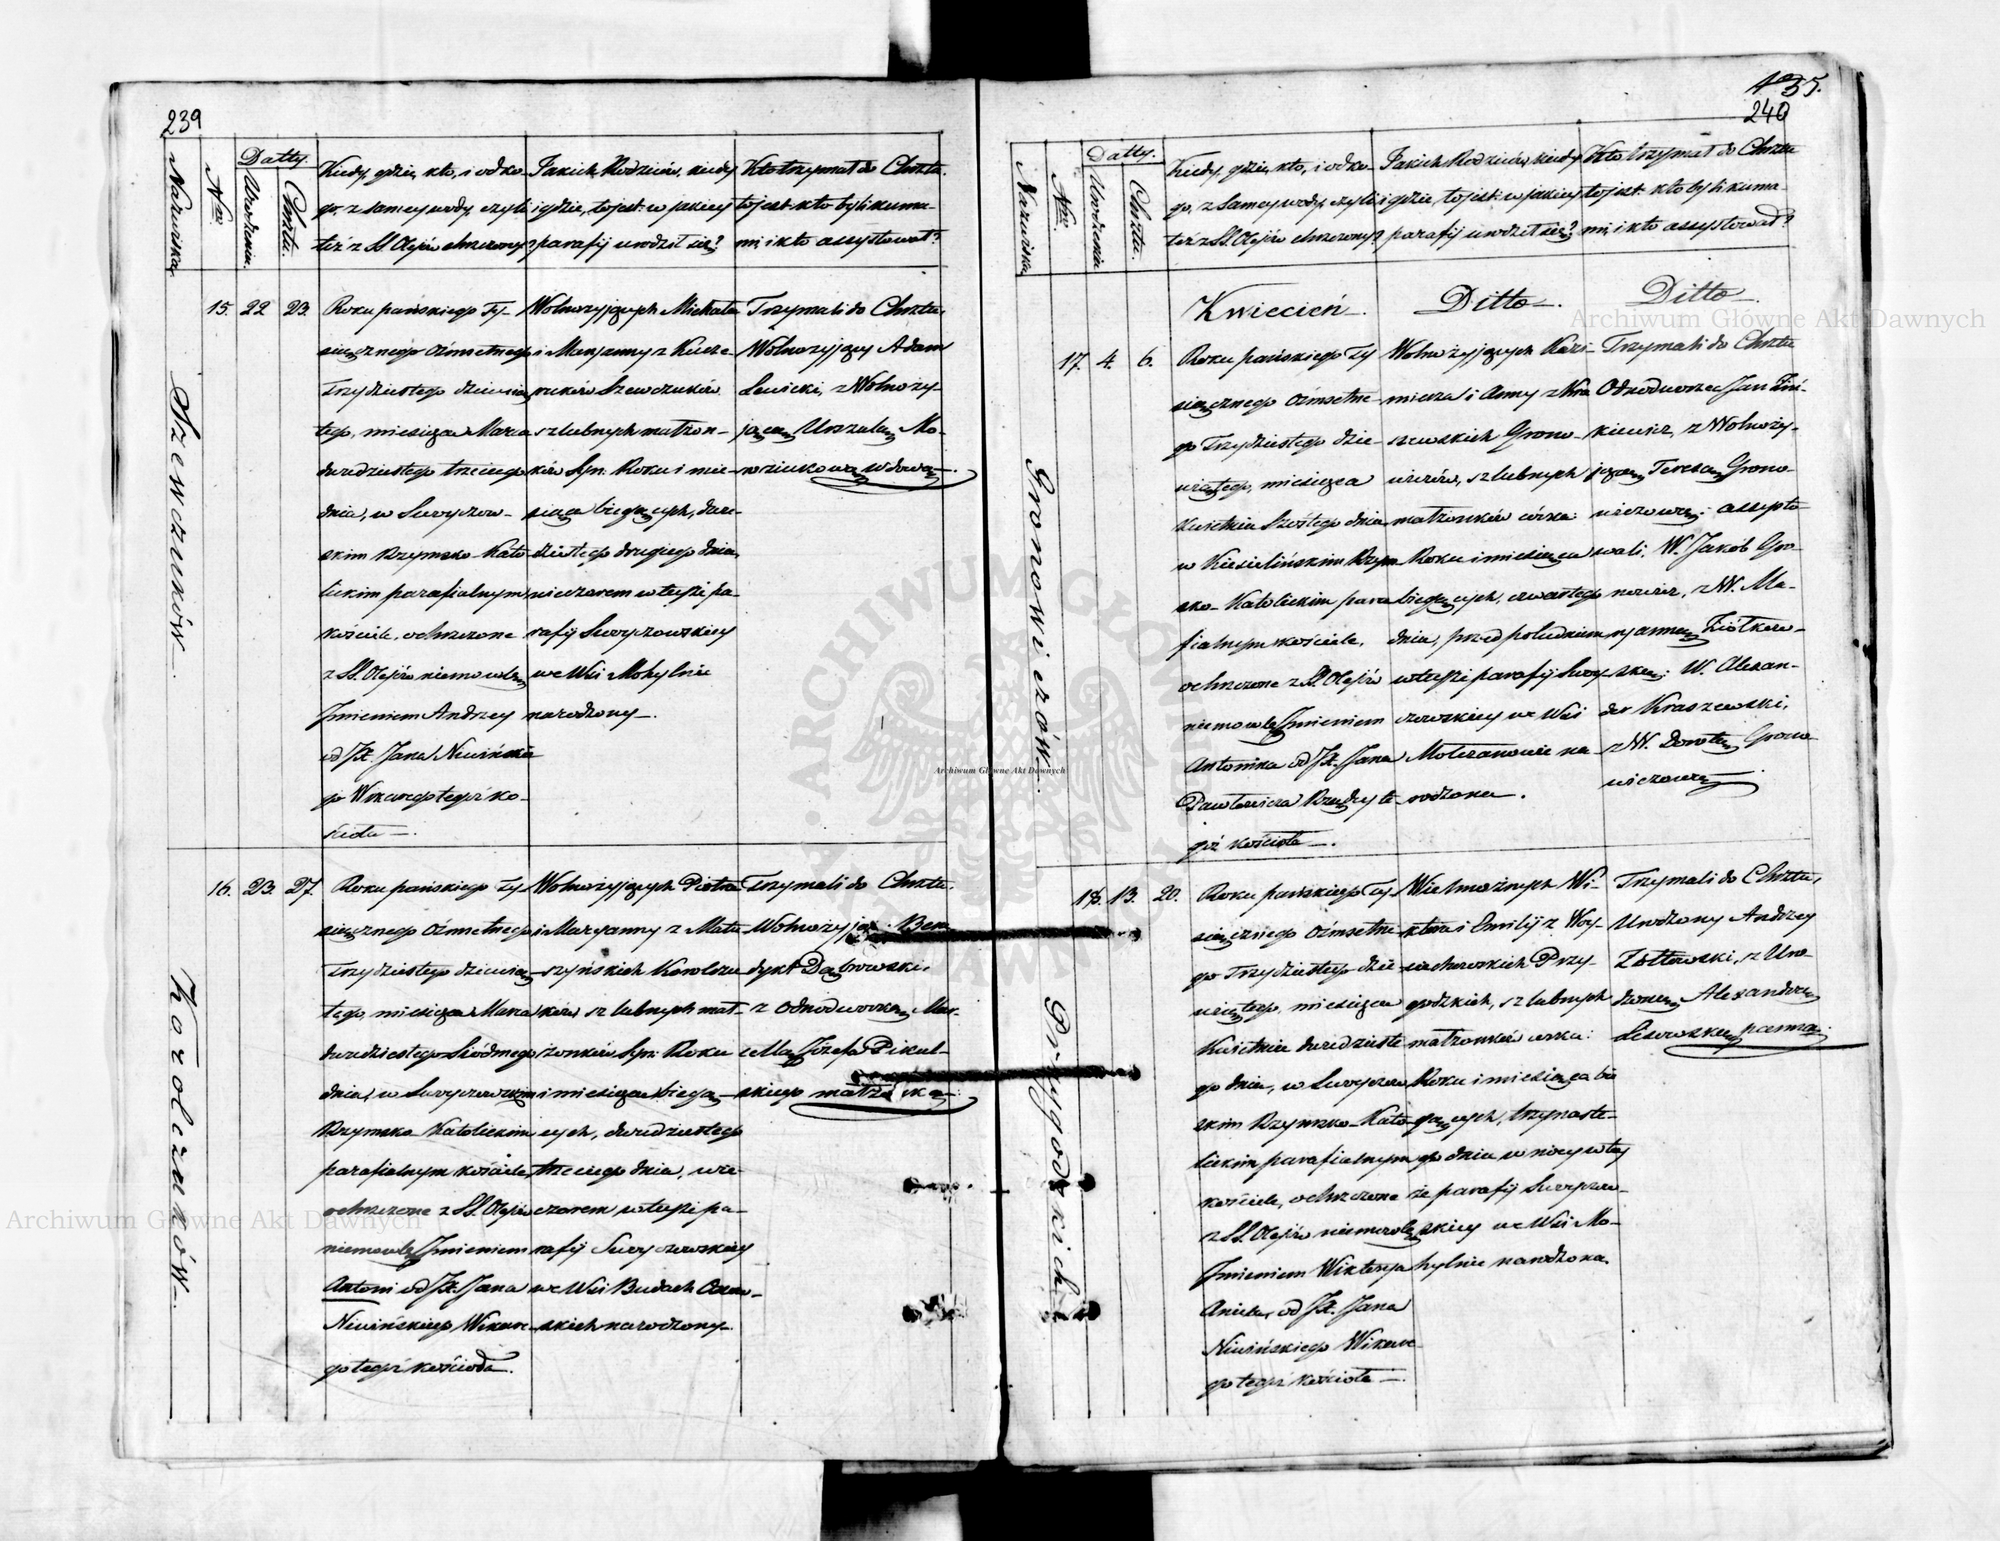 239
Nazwiska
Nrū
Datty.
Urodzenia.
Chrztu.
Kiedy, gdzie, kto, i od ko-
go, z samey wody, czyli
też z SS. Olejów chrzczony?
Jakich Rodziców, kiedy
i gdzie, to jest: w jakiey
parafij urodził się?
Kto trzymał do Chrztu.
to jest: kto byli kuma-
mi i kto assystował?
Szewczuków
15. 22 23.
Roku pańskiego Ty-
siącznego Ośmsetnego
Trzydziestego dziewią-
tego, miesiąca Marca
dwudziestego trzeciego
dnia, w Swoyczow-
skim Rzymsko-Kato-
lickim parafialnym
kościele, ochrzczone
z SS. Olejów niemowlę
Imieniem Andrzey
od JX. Jana Niwińskie
go Wikarego tegoż ko-
ścioła.
Wolnożyjących Michała
i Maryanny z Kucze-
ruków Szewczuków
szlubnych małżon-
ków Syn: Roku i mie-
siąca bieżących, dwu-
dziestego drugiego dnia,
wieczorem w tejże pa-
rafij Swoyczowskiey
we Wsi Mohylnie
narodzony.
Trzymali do Chrztu,
Wolnożyjący Adam
Lewicki, z Wolnoży-
jącą Urszulą Mo-
roziukową wdową.
Karolczuków
16. 23. 27.
Roku pańskiego Ty-
siącznego Ośmsetnego
Trzydziestego dziewią-
tego, miesiąca Marca
dwudziestego Siódmego
dnia, w Swoyczowskim
Rzymsko-Katolickim
parafialnym kościele,
ochrzczone z SS. Olejów
niemowlę Imieniem
Antoni od JX. Jana
Niwińskiego Wikare-
go tegoż kościoła.
Wolnożyjących Piotra
i Maryanny z Matu
szyńskich Karolczu
ków, szlubnych mał-
żonków Syn: Roku
i miesiąca bieżą-
cych, dwudziestego
trzeciego dnia, wie-
czorem w tejże pa-
rafij Swoyczowskiey
we Wsi Budach Ossow-
skich narodzony.
Trzymali do Chrztu.
Wolnożyjący Bene
dykt Dąbrowski,
z Odnodworką Mar-
cellą Józefa Pikul-
skiego małżonką.
135.
240
Nazwiska
Nrū
Datty.
Urodzenia
Chrztu.
Kiedy, gdzie, kto, i od ko-
go, z samey wody, czyli
też z SS. Olejów chrzczony?
Jakich Rodziców, kiedy
i gdzie, to jest: w jakiey
parafij urodził się?
Kto trzymał do Chrztu
to jest: kto byli kuma-
mi, i kto assystował?
Kwiecień. Ditto. Ditto.
Gronowiczów
17. 4. 6.
Roku pańskiego Ty
siącznego Ośmsetne-
go Trzydziestego dzie-
wiątego, miesiąca
Kwietnia Szóstego dnia
w Kisielińskim Rzym
sko-Katolickim para
fialnym kościele,
ochrzczone z SS. Olejów
niemowlę Imieniem
Antonina od JX. Jana
Pawłowicza Rządcy te-
goż kościoła.
Wolno żyjących Kazi-
mierza i Anny z Kra
szewskich Grono-
wiczów, szlubnych
małżonków córka:
Roku i miesiąca
bieżących, czwartego
dnia, przed południem
w tejże parafij Swoy
czowskiey we Wsi
Mołczanowie na-
rodzona.
Trzymali do Chrztu
Odnodworzec Jan
kiewicz, z Wolnoży-
jącą Teresą Grono-
wiczową: assysto
wali: W. Jakób Gro-
nowicz, z W. Ma-
ryanną Ziółkow-
ską: W. Alexan-
der Kraszewski,
z W. Dorotą Grono
wiczową.
Przygodzkich
18. 13. 20.
Roku pańskiego Ty-
siącznego Ośmsetne
go Trzydziestego dzie
wiątego, miesiąca
Kwietnia dwudzieste
go dnia, w Swoyczow
skim Rzymsko-Kato
lickim parafialnym
kościele, ochrzczone
z SS. Olejów niemowlę
Imieniem Wiktorya
Aniela, od JX. Jana
Niwińskiego Wikare-
go tegoż kościoła.
Wielmożnych Wi-
ktora i Emilij z Woy-
ciechowskich Przy-
godzkich, szlubnych
małżonków córka:
Roku i miesiąca bie
żących, trzynaste-
go dnia w nocy w tey
że parafij Swoyczow-
skiey we Wsi Mo-
hylnie narodzona.
Trzymali do Chrztu,
Urodzony Andrzey
Żółtowski, z Uro-
dzoną Alexandrą
Lisowską panną.
Archiwum Główne Akt Dawnych
Archiwum Główne Akt Dawnych
Archiwum Główne Akt Dawnych